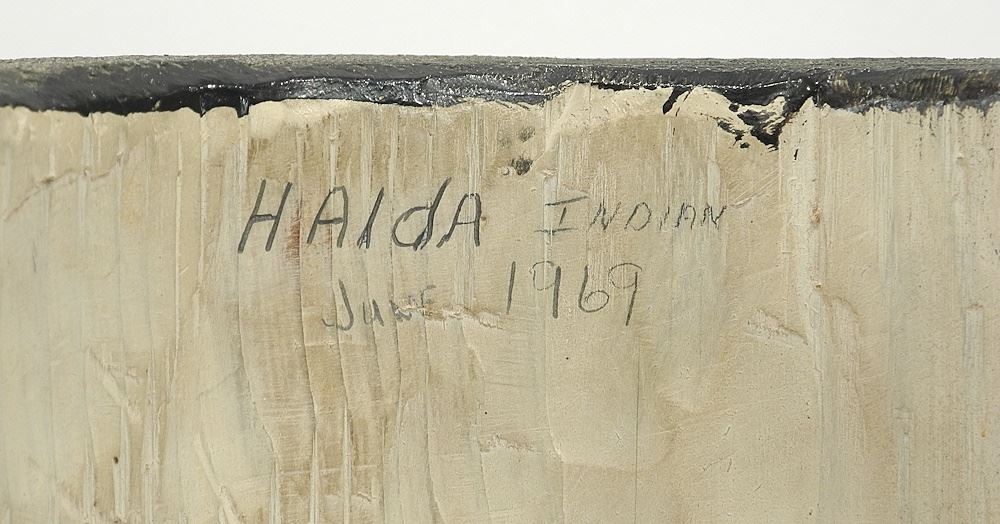 HAIdA INDIAN
JUNE 1969